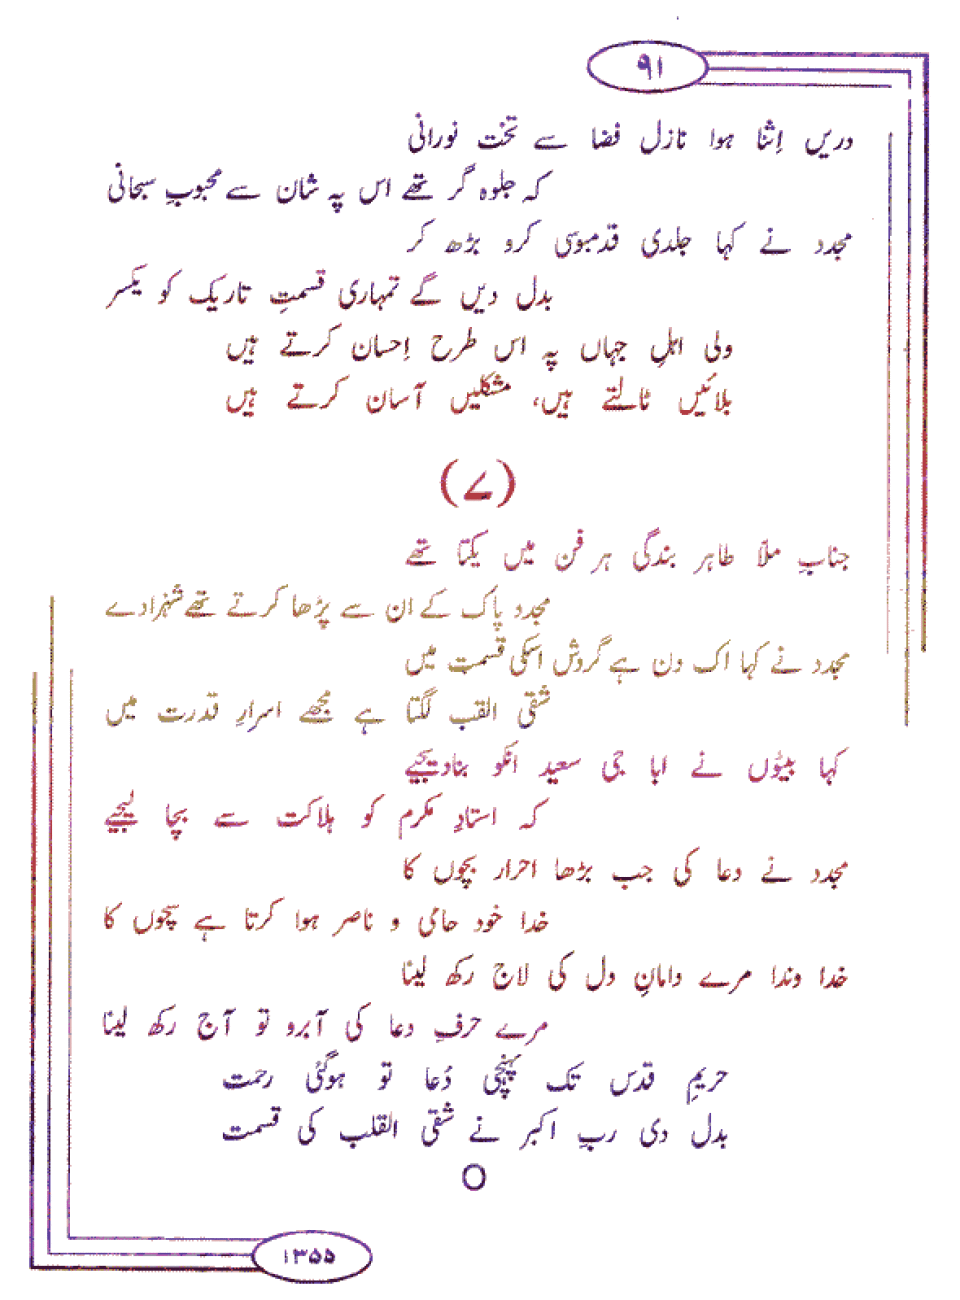 ۹۱
دریں اِثنا ہوا نازل فضا سے تختِ نورانی
کہ جلوہ گر تھے اس پہ شان سے محبوبِ سبحانی
مجدد نے کہا جلدی قدمبوسی کرو بڑھ کر
بدل دیں گے تمہاری قسمتِ تاریک کو یکسر
ولی اہلِ جہاں پہ اس طرح اِحسان کرتے ہیں
بلائیں ٹالتے ہیں، مشکلیں آسان کرتے ہیں
(۷)
جنابِ ملّا طاہر بندگی ہر فن میں یکتا تھے
مجدد پاک کے ان سے پڑھا کرتے تھے شہزادے
مجدد نے کہا اک دن ہے گردش اسکی قسمت میں
شقی القب لگتا ہے مجھے اسرارِ قدرت میں
کہا بیٹوں نے ابا جی سعید انکو بنادیجیے
کہ استادِ مکرم کو ہلاکت سے بچا لیجیے
مجدد نے دعا کی جب بڑھا احرار بچوں کا
خدا خود حامی و ناصر ہوا کرتا ہے سچوں کا
خدا وندا مرے دامانِ دل کی لاج رکھ لینا
مرے حرفِ دعا کی آبرو تو آج رکھ لینا
حریمِ قدس تک پہنچی دُعا تو ہوگئی رحمت
بدل دی ربِ اکبر نے شقی القلب کی قسمت
۱۳۵۵